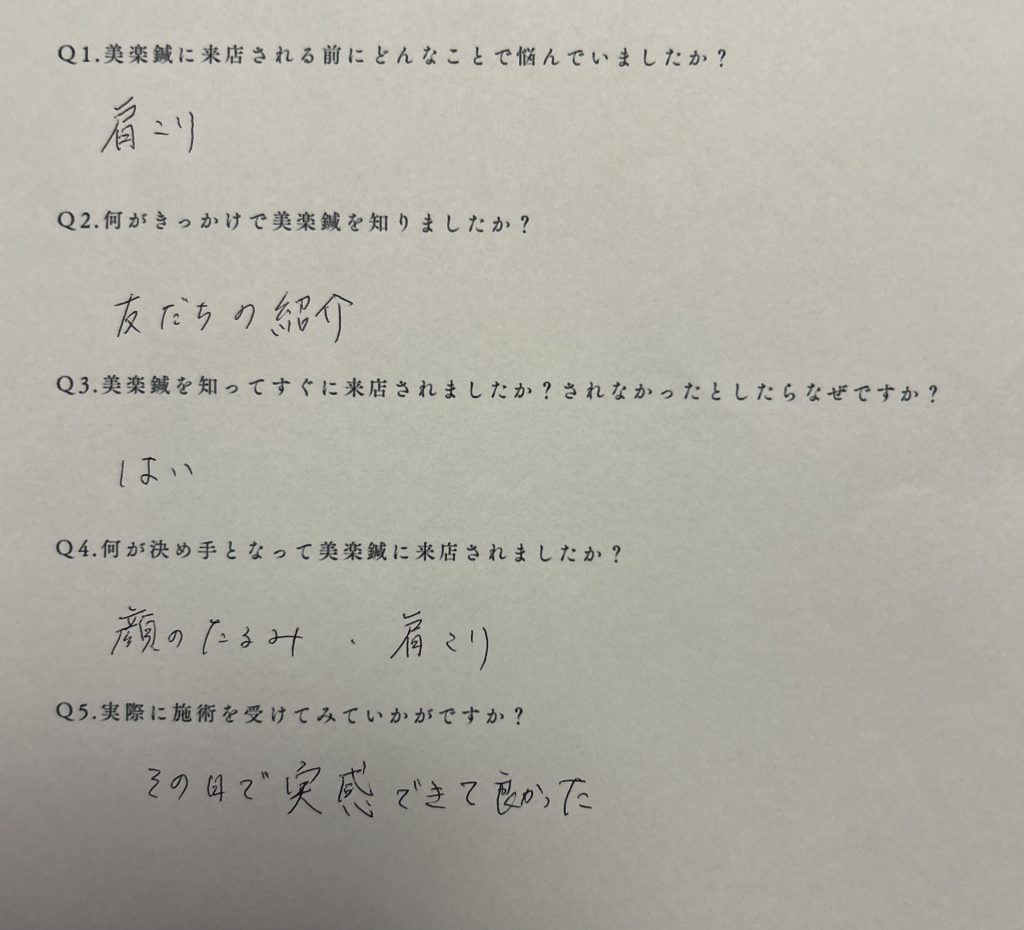 Q1.美楽鍼に来店される前にどんなことで悩んでいましたか？
肩こり
Q2.何がきっかけで美楽鍼を知りましたか？
友だちの紹介
Q3.美楽鍼を知ってすぐに来店されましたか？されなかったとしたらなぜですか？
はい
Q4.何が決め手となって美楽鍼に来店されましたか？
顔のたるみ・肩こり
Q5.実際に施術を受けてみていかがですか？
その日で実感できて良かった